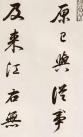 原已與從事
及来江右無